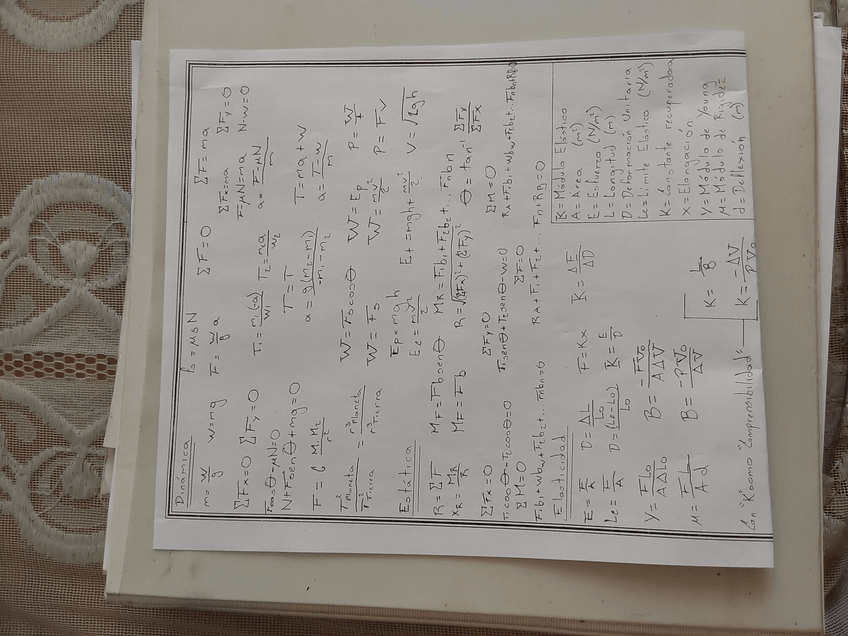 Dinámica
m = W/g   W = mg   F = W/g a   fs = μsN   ΣF = 0   ΣF = ma
ΣFx = 0   ΣFy = 0
Fcosθ - μN = 0
N + Fsenθ + mg = 0
T1 = m1(-a)/W1   T2 = m2a/W2
ΣFx = ma   ΣFy = 0
F - μN = ma   N - W = 0
a = F - μN/m
F = G M1M2/r²
T = T
a = g(m2 - m1)/-m1 - m2
T = ma + W
a = T - W/m
T²Planeta/T²Tierra = r³Planeta/r³Tierra
W = Fscosθ   W = Ep   P = W/t
W = Fs   W = mv²/2   P = Fv
Estática
Ep = mgh
Ec = mv²/2
Et = mgh + mv²/2   V = √2gh
R = ΣF   MF = Fbsenθ   MR = F1b1 + F2b2 + ... Fnbn
XR = MR/R   MF = Fb   R = √(ΣFx)² + (ΣFy)²   θ = tan⁻¹ ΣFy/ΣFx
ΣFx = 0   ΣFy = 0   ΣM = 0
T1cosθ - T2cosθ = 0   T1senθ + T2senθ - W = 0
ΣM = 0   ΣF = 0
F1b1 + WbW + F2b2 + ... Fnbn = 0   RA + F1 + F2 + ... Fn + RB = 0
Elasticidad
E = F/A   D = ΔL/L0   F = Kx   K = ΔF/ΔD
Le = F/A   D = (Lf - L0)/L0   K = E/D
Y = FL0/AΔL0   B = -FV0/AΔV
μ = FL/Ad   B = -PV0/ΔV
K = 1/B
K = -ΔV/PV0
Con "K" como "Comprensibilidad"
K = Módulo Elástico
A = Área (m²)
E = Esfuerzo (N/m²)
L = Longitud (m)
D = Deformación Unitaria
Le = Límite Elástico (N/m²)
K = Constante recuperadora
X = Elongación
Y = Módulo de Young
μ = Módulo de Rigidez
d = Deflexión (m)